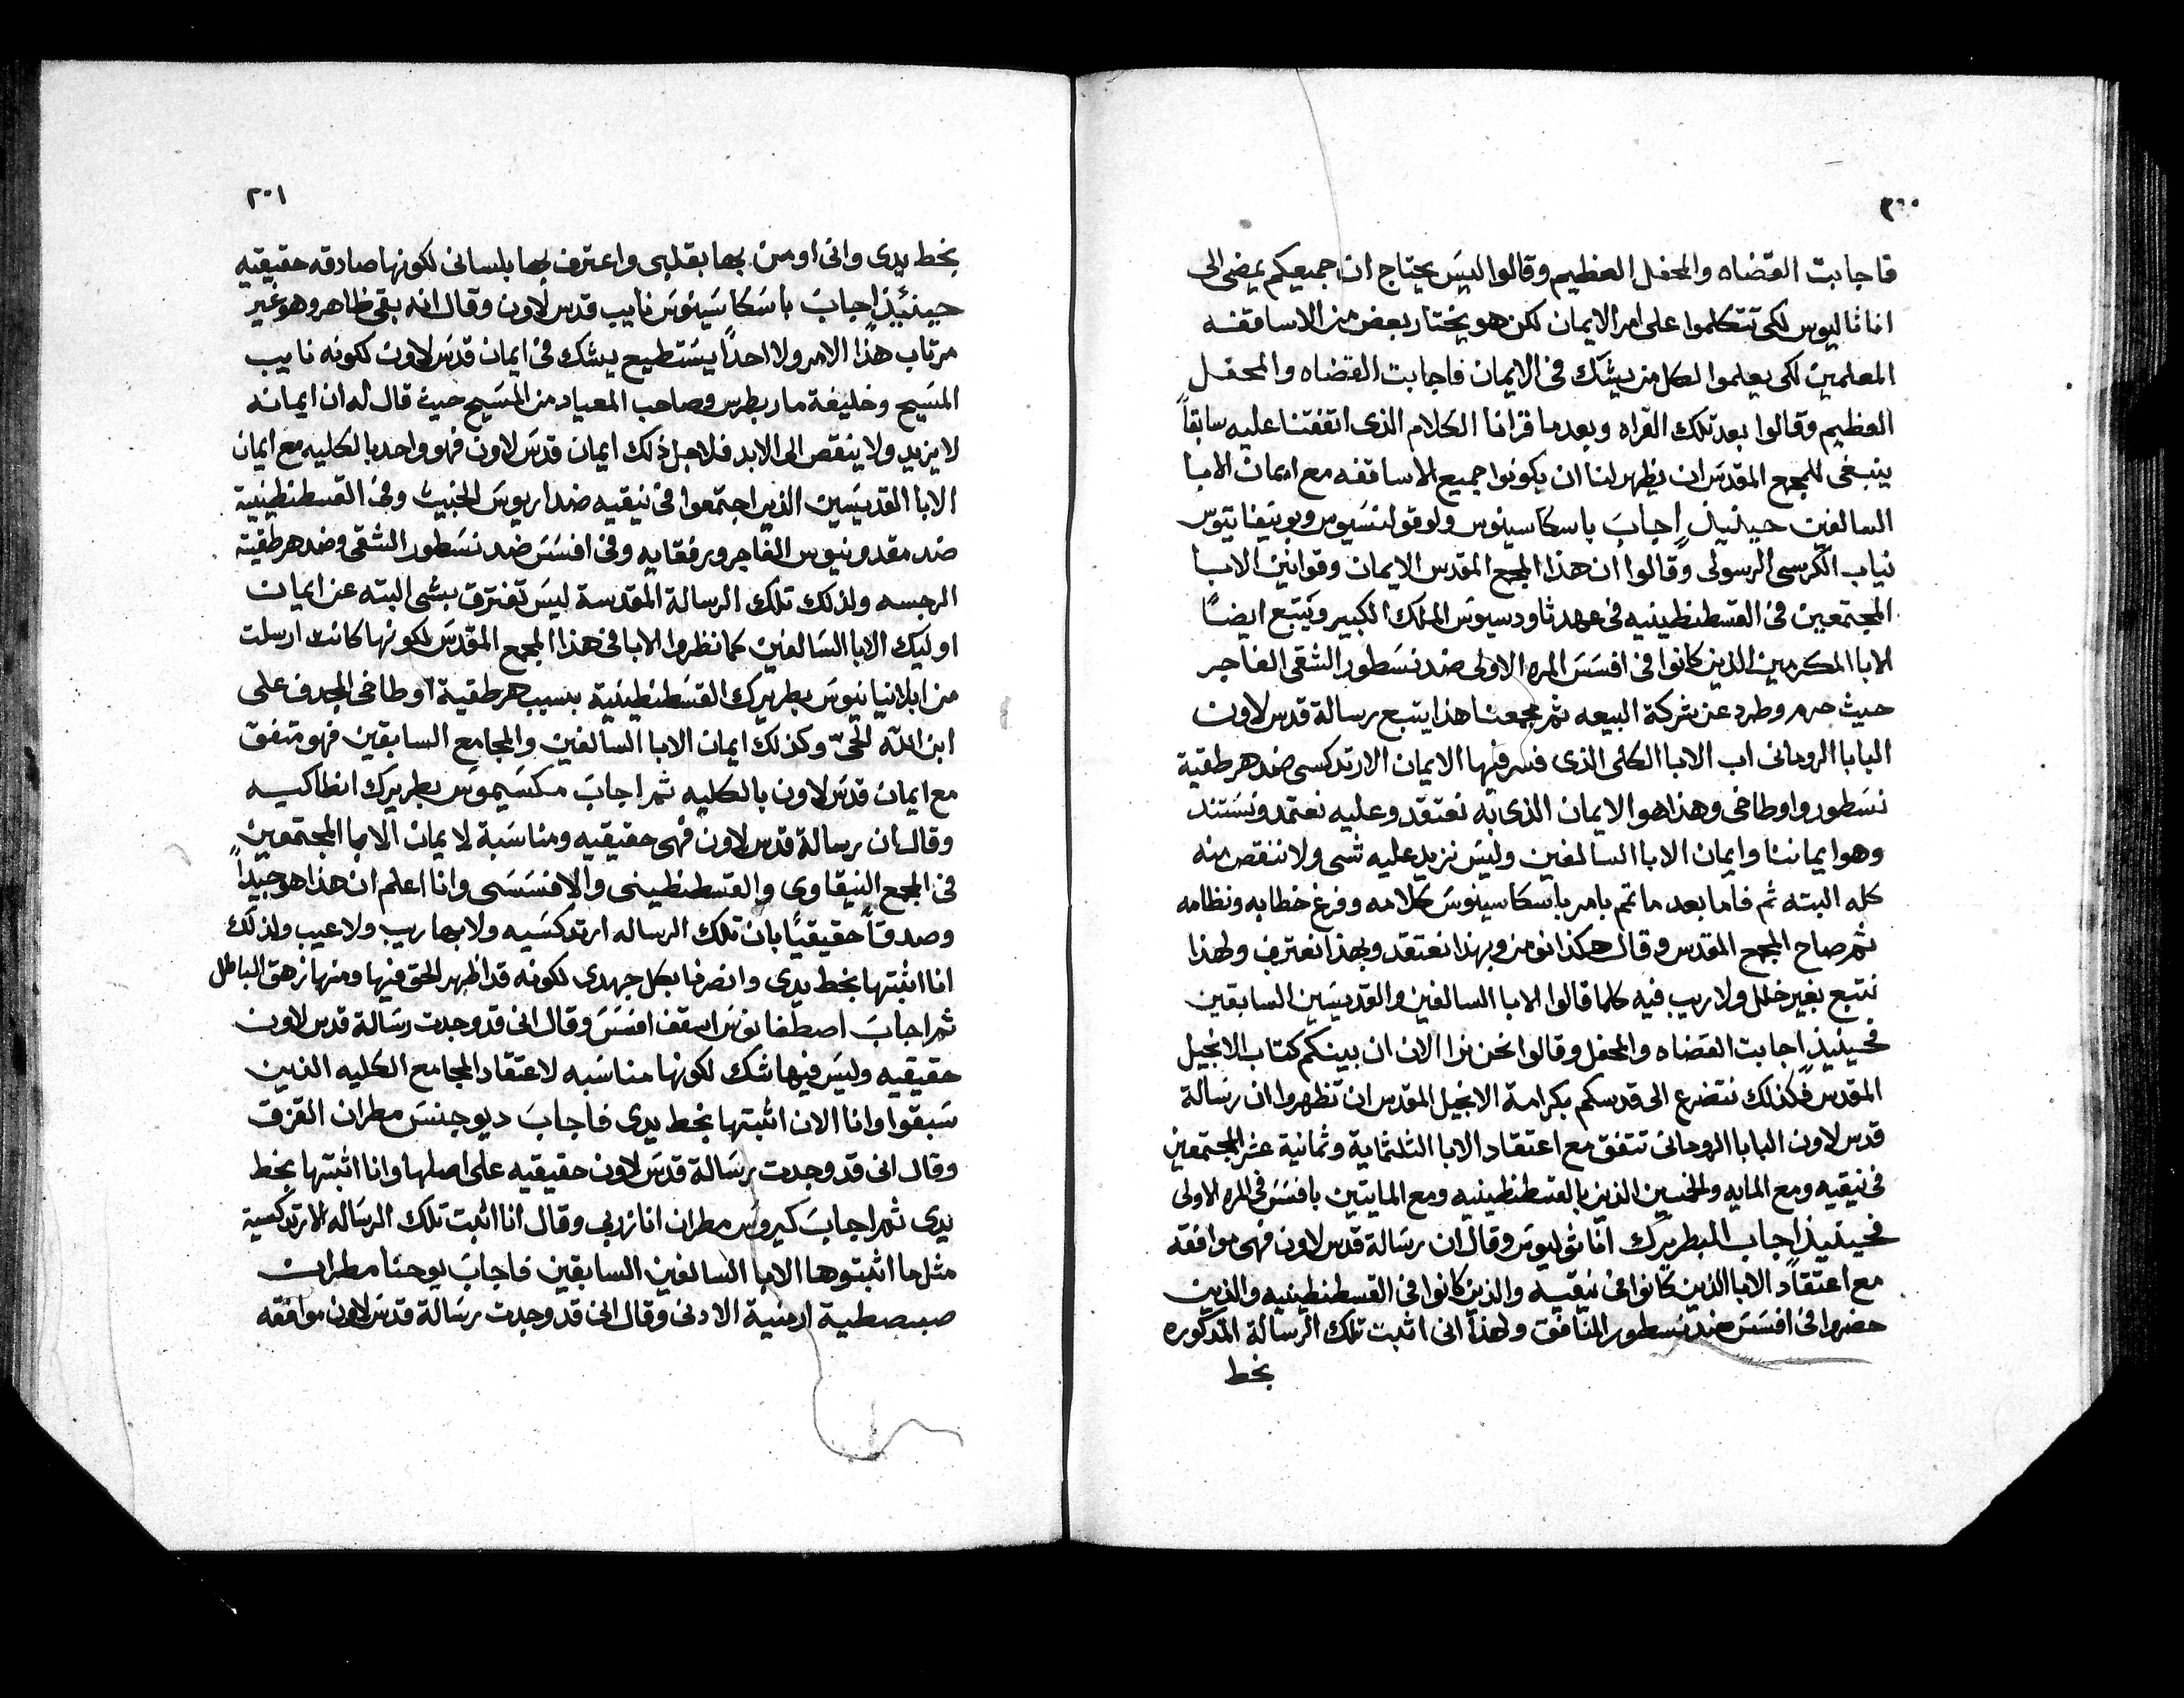 ٣٠٠
فاجابت القضاه والمحفل العظيم وقالوا ليسَ يحتاج ان جميعكم يمضى الى
اناثاليوس لكى تتكلموا على امر الايمان لكن هو يختار بعض من الاساقفه
المعلمين لكى يعلموا لكل من يشك فى الايمان فاجابت القضاه والمحفل
العظيم وقالوا بعد تلك القراه وبعد ما قرانا الكلام الذى اتفقتنا عليه سابقاً
ينبغى للمجمع المقدسَ ان يظهر لنا ان يكونوا جميع الاساقفه مع ايمان الابا
السالفين حينيذٍ اجابَ باسكاسينوس ولوقولنسَيوس وبونيفاتيوس
نياب الكرسى الرسولى وقالوا ان هذا المجمع المقدس الايمان وقوانين الابا
المجتمعين فى القسطنطينيه فى عهد ثاودسيوسَ الملك الكبير ويتبع ايضاً
الابا المكرمين الذين كانوا فى افسَسَ المره الاولى ضد نسَطور الشقى الفاجر
حيث حرم وطرد عن شركة البيعه ثم مجمعنا هذا يتبع رسالة قدس لاون
البابا الرومانى اب الابا الكلى الذى فسر فيها الايمان الارتدكسى ضد هرطقية
نسَطور واوطاخى وهذا هو الايمان الذى به نعتقد وعليه نعتمد ونسَتند
وهو ايماننا وايمان الابا السالفين وليسَ نزيد عليه شى ولا ننقص منه
كله البته ثم فاما بعد ما تم بامر باسكاسينوسَ كلامه وفرغ خطابه ونظامه
ثم صاح المجمع المقدس وقال هكذا نومن وبهذا نعتقد وبهذا نعترف ولهذا
نتبع بغير خلل ولا ريب فيه كلما قالوا الابا السالفين والقديسَين السابقين
فحينيذٍ اجابت القضاه والمحفل وقالوا نحن نرا الان ان بينكم كتاب الانجيل
المقدس فكذلك نتضرع الى قدسكم بكرامة الانجيل المقدس ان تظهروا ان رسالة
قدس لاون البابا الرومانى تتفق مع اعتقاد الابا الثلثماية وثمانية عشر المجتمعين
فى نيقيه ومع المايه والخمسين الذين بالقسطنطينيه ومع المايتين بافسَسَ فى المره الاولى
فحينيذٍ اجاب البطريرك اناثوليوسَ وقال ان رسَالة قدس لاون فهى موافقه
مع اعتقاد الابا الذين كانوا فى نيقيه والذين كانوا فى القسطنطينيه والذين
حضروا فى افسَسَ ضد نسطور المنافق ولهذا انى اثبت تلك الرسالة المذكوره
بخط
٣٠١
بخط يدى وانى اومن بها بقلبى واعترف بها بلسانى لكونها صادقه حقيقيه
حينئيذٍ اجابَ باسَكاسَينوسَ نايب قدس لاون وقال انه بقى ظاهر وهو غير
مرتاب هذا الامر ولا احداً يسَتطيع يشك فى ايمان قدسَ لاون لكونه نايب
المسَيح وخليفة مار بطرس وصاحب المعياد من المسَيح حيث قال له ان ايمانه
لا يزيد ولا ينقص الى الابد فلاجل ذلك ايمان قدسَ لاون فهو واحد بالكليه مع ايمان
الابا القديسَين الذين اجتمعوا فى نيقيه ضد اريوسَ الخبيث وفى القسطنطينية
ضد مقدونيوس الفاجر ورفقايه وفى افسَسَ ضد نسَطور الشقى وضد هرطقيته
الرجسه ولذلك تلك الرسالة المقدسة ليسَ تفترق بشى البته عن ايمان
اوليك الابا السَالفين كما نظروا الابا فى هذا المجمع المقدسَ لكونها كانت ارسلت
من ابلانيانيوسَ بطريرك القسَطنطينية بسبب هرطقية اوطاخى المجدف على
ابن الله الحىّ وكذلك ايمان الابا السالفين والمجامع السابقين فهو متفق
مع ايمان قدسَ لاون بالكليه ثم اجابَ مكسَيموسَ بطريرك انطاكيه
وقال ان رسالة قدس لاون فهى حقيقيه ومناسَبة لايمان الابا المجتمعين
فى المجمع النيقاوى والقسطنطينى والافسَسَى وانا اعلم ان هذا هو جيداً
وصدقاً حقيقيًا بان تلك الرساله ارتدكسَيه ولا بها ريب ولا عيب ولذلك
انا اثبتها بخط يدى وانصرها بكل جهدى لكونه قد اظهر الحق فيها ومنها زهق الباطل
ثم اجابَ اصطفانوسَ اسقف افسَسَ وقال انى قد وجدت رسَالة قدس لاون
حقيقيه وليسَ فيها شك لكونها مناسَبه لاعتقاد المجامع الكليه الذين
سَبقوا وانا الان اثبتها بخط يدى فاجابَ ديوجنسَ مطران القزق
وقال انى قد وجدت رسَالة قدسَ لاون حقيقيه على اصلها وانا اثبتها بخط
يدى ثم اجابَ كيروسَ مطران انازربى وقال انا اثبت تلك الرسَاله الارتدكسية
مثل ما اثبتوها الابا السالفين السابقين فاجابَ يوحنا مطران
صبصطية ارمنية الادنى وقال انى قد وجدت رسَالة قدسَ لاون موافقه